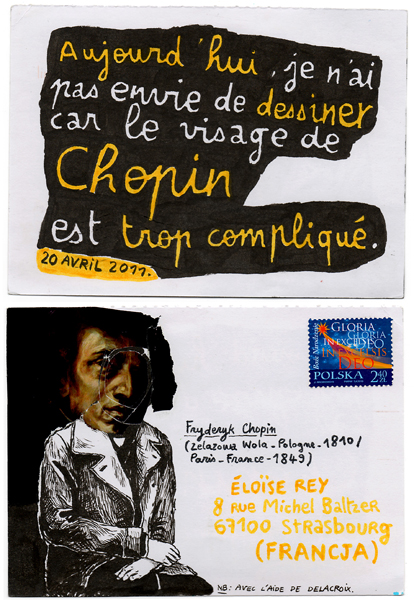 Aujourd'hui, je n'ai
pas envie de dessiner
car le visage de
Chopin
est trop compliqué.
20 AVRIL 2011.
Boże Narodzenie
GLORIA
IN EXCELSIS
DEO
POLSKA 2,40 ZŁ
Fryderyk Chopin
(Zelazowa Wola - Pologne - 1810/
Paris - France - 1849)
ÉLOÏSE REY
8 rue Michel Baltzer
67100 Strasbourg
(FRANCJA)
NB: AVEC L'AIDE DE DELACROIX.